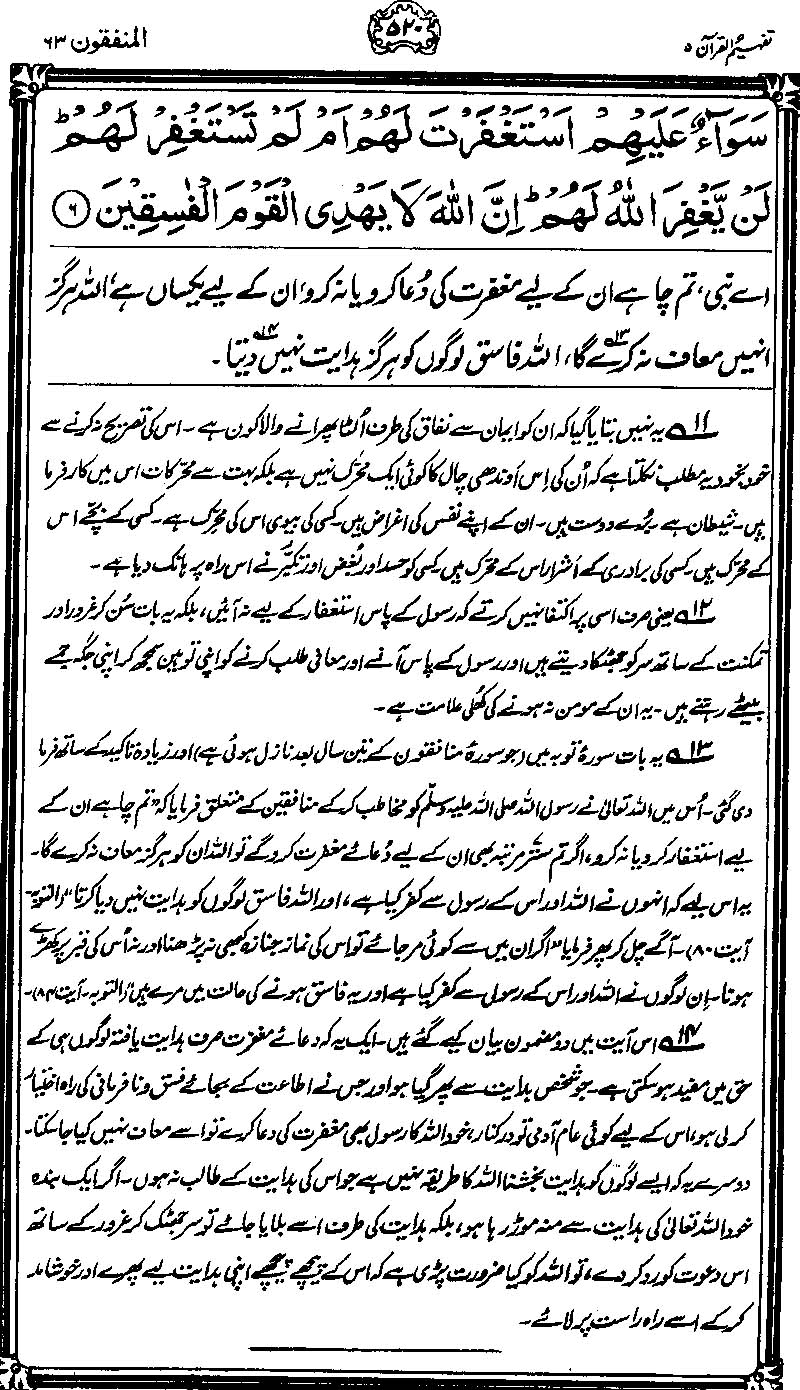 تفہیم القرآن ۵
۵۲۰
المنٰفقون ۶۳
سَوَآءٌ عَلَيْهِمْ اَسْتَغْفَرْتَ لَهُمْ اَمْ لَمْ تَسْتَغْفِرْ لَهُمْ ؕ
لَنْ يَّغْفِرَ اللّٰهُ لَهُمْ ؕ اِنَّ اللّٰهَ لَا يَهْدِى الْقَوْمَ الْفٰسِقِيْنَ ۶
اے نبی، تم چاہے ان کے لیے مغفرت کی دُعا کرو یا نہ کرو، ان کے لیے یکساں ہے، اللہ ہرگز
انہیں معاف نہ کرے گا،۱۳ اللہ فاسق لوگوں کو ہرگز ہدایت نہیں دیتا۔۱۴
۱۱ یہ نہیں بتایا گیا کہ ان کو ایمان سے نفاق کی طرف اُلٹا پھرانے والا کون ہے۔ اس کی تصریح نہ کرنے سے
خود بخود یہ مطلب نکلتا ہے کہ اُن کی اِس اَوندھی چال کا کوئی ایک محرّک نہیں ہے بلکہ بہت سے محرّکات اس میں کارفرما
ہیں۔ شیطان ہے۔ بُرے دوست ہیں۔ ان کے اپنے نفس کی اغراض ہیں۔ کسی کی بیوی اس کی محرّک ہے۔ کسی کے بچّے اس
کے محرّک ہیں۔ کسی کی برادری کے اَشرار اس کے محرّک ہیں۔ کسی کو حسد اور بُغض اور تکبُّر نے اس راہ پر ہانک دیا ہے۔
۱۲ یعنی صرف اسی پر اکتفا نہیں کرتے کہ رسول کے پاس استغفار کے لیے نہ آئیں، بلکہ یہ بات سُن کر غرور اور
تمکنت کے ساتھ سر کو جھٹکا دیتے ہیں اور رسول کے پاس آنے اور معافی طلب کرنے کو اپنی توہین سمجھ کر اپنی جگہ جمے
بیٹھے رہتے ہیں۔ یہ ان کے مومن نہ ہونے کی کُھلی علامت ہے۔
۱۳ یہ بات سورۂ توبہ میں (جو سورۂ منافقون کے تین سال بعد نازل ہوئی ہے) اور زیادہ تاکید کے ساتھ فرما
دی گئی۔ اُس میں اللہ تعالیٰ نے رسول اللہ صلی اللہ علیہ وسلّم کو مخاطب کر کے منافقین کے متعلق فرمایا کہ "تم چاہے ان کے
لیے استغفار کرو یا نہ کرو، اگر تم ستّر مرتبہ بھی ان کے لیے دُعائے مغفرت کرو گے تو اللہ ان کو ہرگز معاف نہ کرے گا۔
یہ اس لیے کہ انہوں نے اللہ اور اس کے رسول سے کفر کیا ہے، اور اللہ فاسق لوگوں کو ہدایت نہیں دیا کرتا" (التوبہ۔
آیت ۸۰)۔ آگے چل کر پھر فرمایا "اگر ان میں سے کوئی مر جائے تو اس کی نماز جنازہ کبھی نہ پڑھنا اور نہ اُس کی قبر پر کھڑے
ہونا۔ اِن لوگوں نے اللہ اور اس کے رسول سے کفر کیا ہے اور یہ فاسق ہونے کی حالت میں مرے ہیں" (التوبہ۔ آیت ۸۴)۔
۱۴ اس آیت میں دو مضمون بیان کیے گئے ہیں۔ ایک یہ کہ دعائے مغفرت صرف ہدایت یافتہ لوگوں ہی کے
حق میں مفید ہو سکتی ہے۔ جو شخص ہدایت سے پھر گیا ہو اور جس نے اطاعت کے بجائے فسق و نافرمانی کی راہ اختیار
کر لی ہو، اس کے لیے کوئی عام آدمی تو درکنار، خود اللہ کا رسول بھی مغفرت کی دعا کرے تو اسے معاف نہیں کیا جا سکتا۔
دوسرے یہ کہ ایسے لوگوں کو ہدایت بخشنا اللہ کا طریقہ نہیں ہے جو اس کی ہدایت کے طالب نہ ہوں۔ اگر ایک بندہ
خود اللہ تعالیٰ کی ہدایت سے منہ موڑ رہا ہو، بلکہ ہدایت کی طرف اسے بلایا جائے تو سر جھٹک کر غرور کے ساتھ
اس دعوت کو رد کر دے، تو اللہ کو کیا ضرورت پڑی ہے کہ اس کے پیچھے پیچھے اپنی ہدایت لیے پھرے اور خوشامد
کر کے اسے راہ راست پر لائے۔